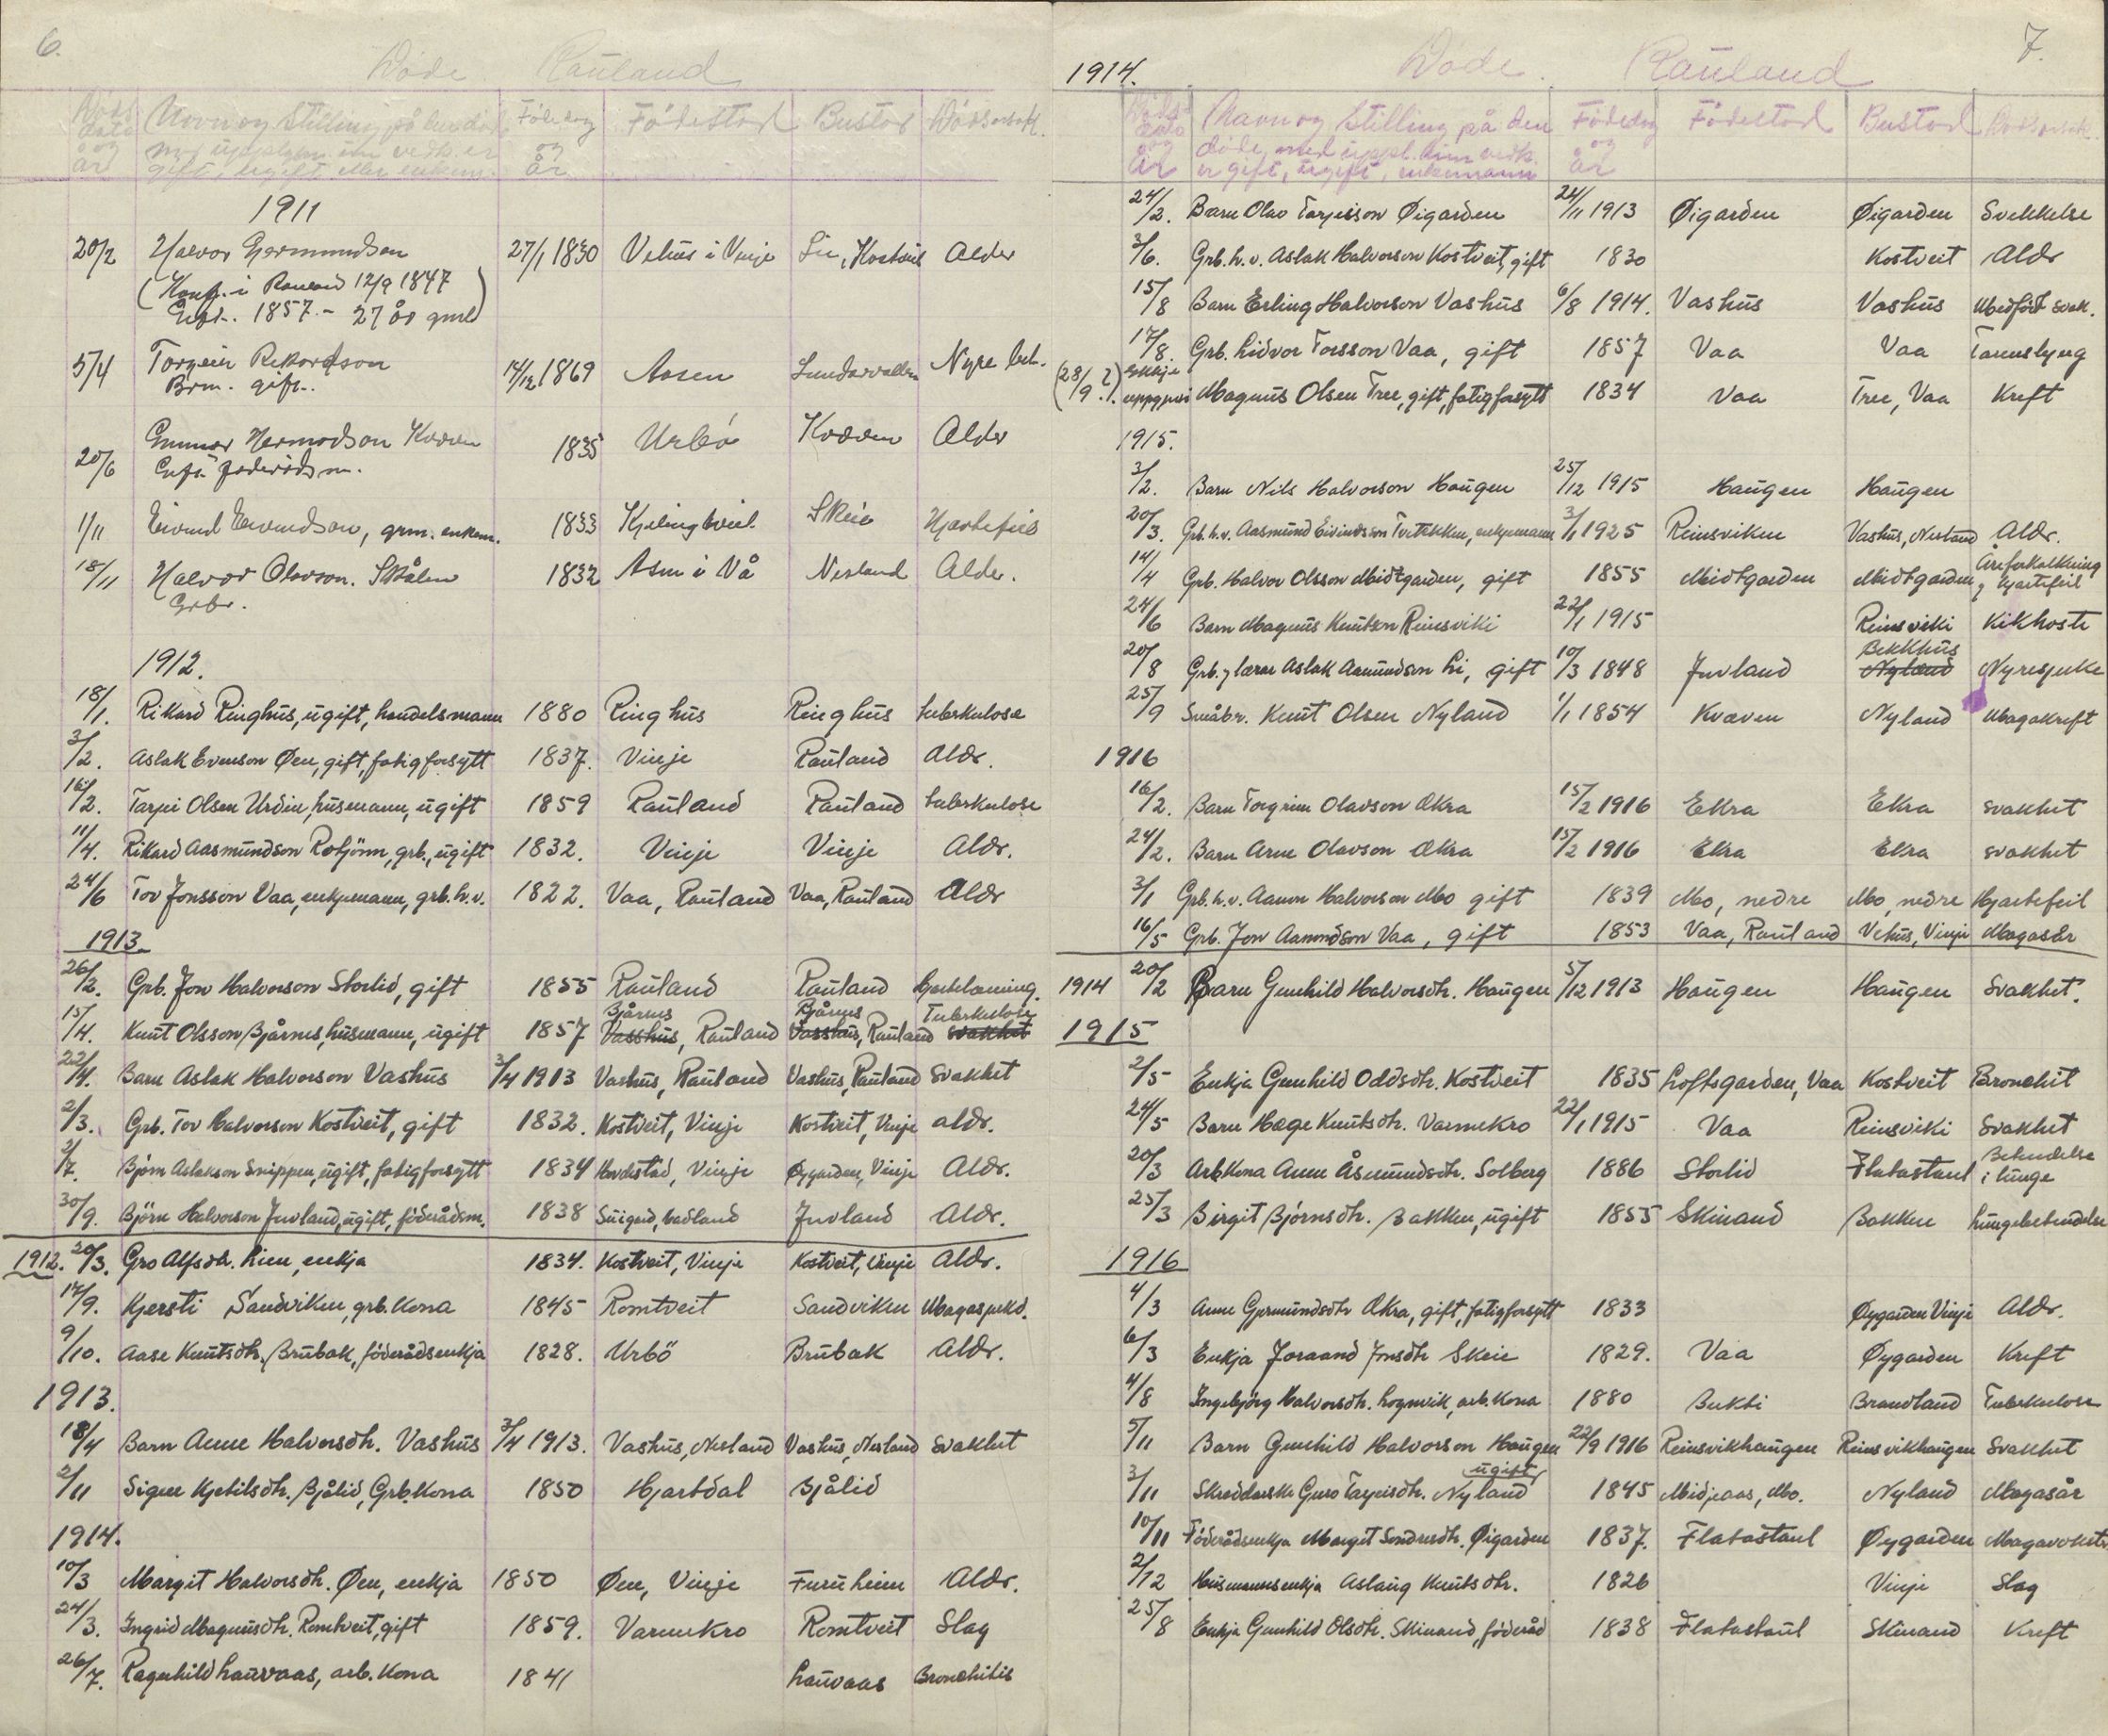 6.
Døde Rauland
Døds dato og år Navn og Stilling på den døde Fødedag og år Fødestad Bustad Dødsorsak.
1911
20/2 Halvor Germundson 27/1 1830 Vehus i Vinje Alder
(Konf. i Rauland 12/9 1847
1857 - 27 år gml)
5/4 Torgeir Rikardson 14/12 1869 Aasen Nyre bet.
Brm. gift.
20/6 Gunnar Hermodson Kvæven 1835 Urbö Kvæven Alder
Gift föderådsm.
1/11 Eivind Eivindson, grm. enkem. 1833 Skeie Hjartefeil
18/11 Halvor Olavson. Skålen 1832 Åsen i Vå Nesland Alder.
Grbr.
1912.
18/1. Rikard Ringhus, ugift, handelsmann 1880 Ringhus Ringhus tuberkulose
3/2. Aslak Evenson Øen, gift, fatigforsytt 1837. Vinje Rauland Aldr.
16/2. Tarjei Olsen Urdin, husmann, ugift 1859 Rauland Rauland tuberkulose
11/4. Rikard Aasmundson Rotjönn, grb., ugift 1832. Vinje Vinje Aldr.
24/6 Tov Jonsson Vaa, enkjemann, grb. h.v. 1822. Vaa, Rauland Vaa, Rauland Aldr
1913
26/2. Grb. Jon Halvorson Storlid, gift 1855 Rauland Rauland
Bjårnes Bjårnes Tuberkulose
15/4. Knut Olsson Bjårnes, husmann, ugift 1857 Vasshus, Rauland Vasshus, Rauland svakhet
22/4. Barn Aslak Halvorson Vashus 3/4 1913 Vashus, Rauland Vashus, Rauland Svakhet
2/3. Grb. Tov Halvorson Kostveit, gift 1832. Kostveit, Vinje Kostveit, Vinje aldr.
2/7. Björn Aslakson Snippen, ugift, fatigforsytt 1834 Vinje Øygarden, Vinje Aldr.
30/9. Björn Halvorson Juvland, ugift, föderådsm. 1838 Juvland Aldr.
1912. 20/3. Gro Alfsdh. Lien, enkja 1834. Kostveit, Vinje Kostveit, Vinje Aldr.
17/9. Kjersti Sandviken, grb. Kona 1845 Romtveit Sandviken Magasjukd.
9/10. Aase Knutsdh. Brubak, föderådsenkja 1828. Urbö Brubak Aldr.
1913.
18/4 Barn Anne Halvorsdh. Vashus 3/4 1913. Vashus, Nesland Vashus, Nesland svakhet
2/11 Signe Kjetilsdh. Bjålid, Grb. Kona 1850 Hjartdal Bjålid
1914.
10/3 Margit Halvorsdh. Øen, enkja 1850 Øen, Vinje Furuheim Aldr.
24/3. Ingrid Magnusdh. Romtveit, gift 1859. Varmekro Romtveit Slag
26/7. Ragnhild Lauvaas, arb. Kona 1841 Lauvaas Bronchitis
1914. Døde. Rauland 7.
Døds dato og år Navn og Stilling på den Fødedag og år Fødestad Bustad Dødsorsak
døde, med uppl. um vedk.
er gift, ugift, enkemann
24/2. Barn Olav Tarjeisson Øigarden 24/11 1913 Øigarden Øigarden Svekkelse
3/6. Grb. h.v. Aslak Halvorson Kostveit, gift 1830 Kostveit Aldr
15/8 Barn Erling Halvorson Vashus 6/8 1914. Vashus Vashus Medfødt svak.
17/8. Grb. Lidvor Torsson Vaa, gift 1857 Vaa Vaa
(28/9 ?). Ikkje uppgjevi Magnus Olsen Tree, gift, fatigforsytt 1834 Vaa Tree, Vaa Kreft
1915.
3/2. Barn Nils Halvorson Haugen 25/12 1915 Haugen Haugen
20/3. Grb. h.v. Aasmund Eivindsson Tvitekkin, enkjemann 3/1 1925 Reinsviken Vashus, Nesland Aldr.
14/4 Grb. Halvor Olsson Midtgarden, gift 1855 Midtgarden Midtgarden Åreforkalkning
og hjartefeil
24/6 Barn Magnus Knutson Reinsviki 22/1 1915 Reinsviki Kikhoste
Bekkhus
20/8 Grb. og lærar Aslak Aamundson Li, gift 10/3 1848 Juvland Nyland Nyresjuke
25/9 Småbr. Knut Olsen Nyland 1/1 1854 Kvæven Nyland Magakreft
1916
16/2. Barn Torgrim Olavson Ækra 15/2 1916 Ekra Ekra svakhet
24/2. Barn Arne Olavson Ækra 15/2 1916 Ekra Ekra svakhet
3/1 Grb. h.v. Aanon Halvorson Mo gift 1839 Mo, nedre Mo, nedre Hjartefeil
16/5 Grb. Jon Aanondson Vaa, gift 1853 Vaa, Rauland Vehus, Vinje Magasår
1914 20/2 Barn Gunhild Halvorsdh. Haugen 5/12 1913 Haugen Haugen Svakhet.
1915
2/5 Enkja Gunhild Oddsdh. Kostveit 1835 Loftsgarden, Vaa Kostveit Bronchit
24/5 Barn Hæge Knutsdh. Varmekro 22/1 1915 Vaa Reinsviki Svakhet
20/3 Arb. Kona Anne Åsmundsdh. Solberg 1886 Storlid Flatastaul Betendelse
i lunge
25/3 Birgit Björnsdh. Bakken, ugift 1855 Skinand Bakken Lungebetendelse
1916
4/3 Anne Germundsdh Ækra, gift, fatigforsytt 1833 Øygarden Vinje Aldr.
6/3 Enkja Joraand Jonsdh Skeie 1829. Vaa Øygarden Kreft
4/8 Ingebjörg Halvorsdh. Lognvik, arb. Kona 1880 Bukti Brandland Tuberkulose
5/11 Barn Gunhild Halvorson Haugen 22/9 1916 Reinsvikhaugen Reinsvikhaugen Svakhet
ugift
3/11 Skreddarske Guro Tarjeisdh. Nyland 1845 Midjeaas, Mo. Nyland Magasår
10/11 Föderådsenkja Margit Sondresdh. Øigarden 1837. Flatastaul Øygarden
2/12 Husmannsenkja Aslaug Knutsdh. 1826 Vinje Slag
25/8 Enkja Gunhild Olsdh. Skinand, föderåd 1838 Flatastaul Skinand Kreft